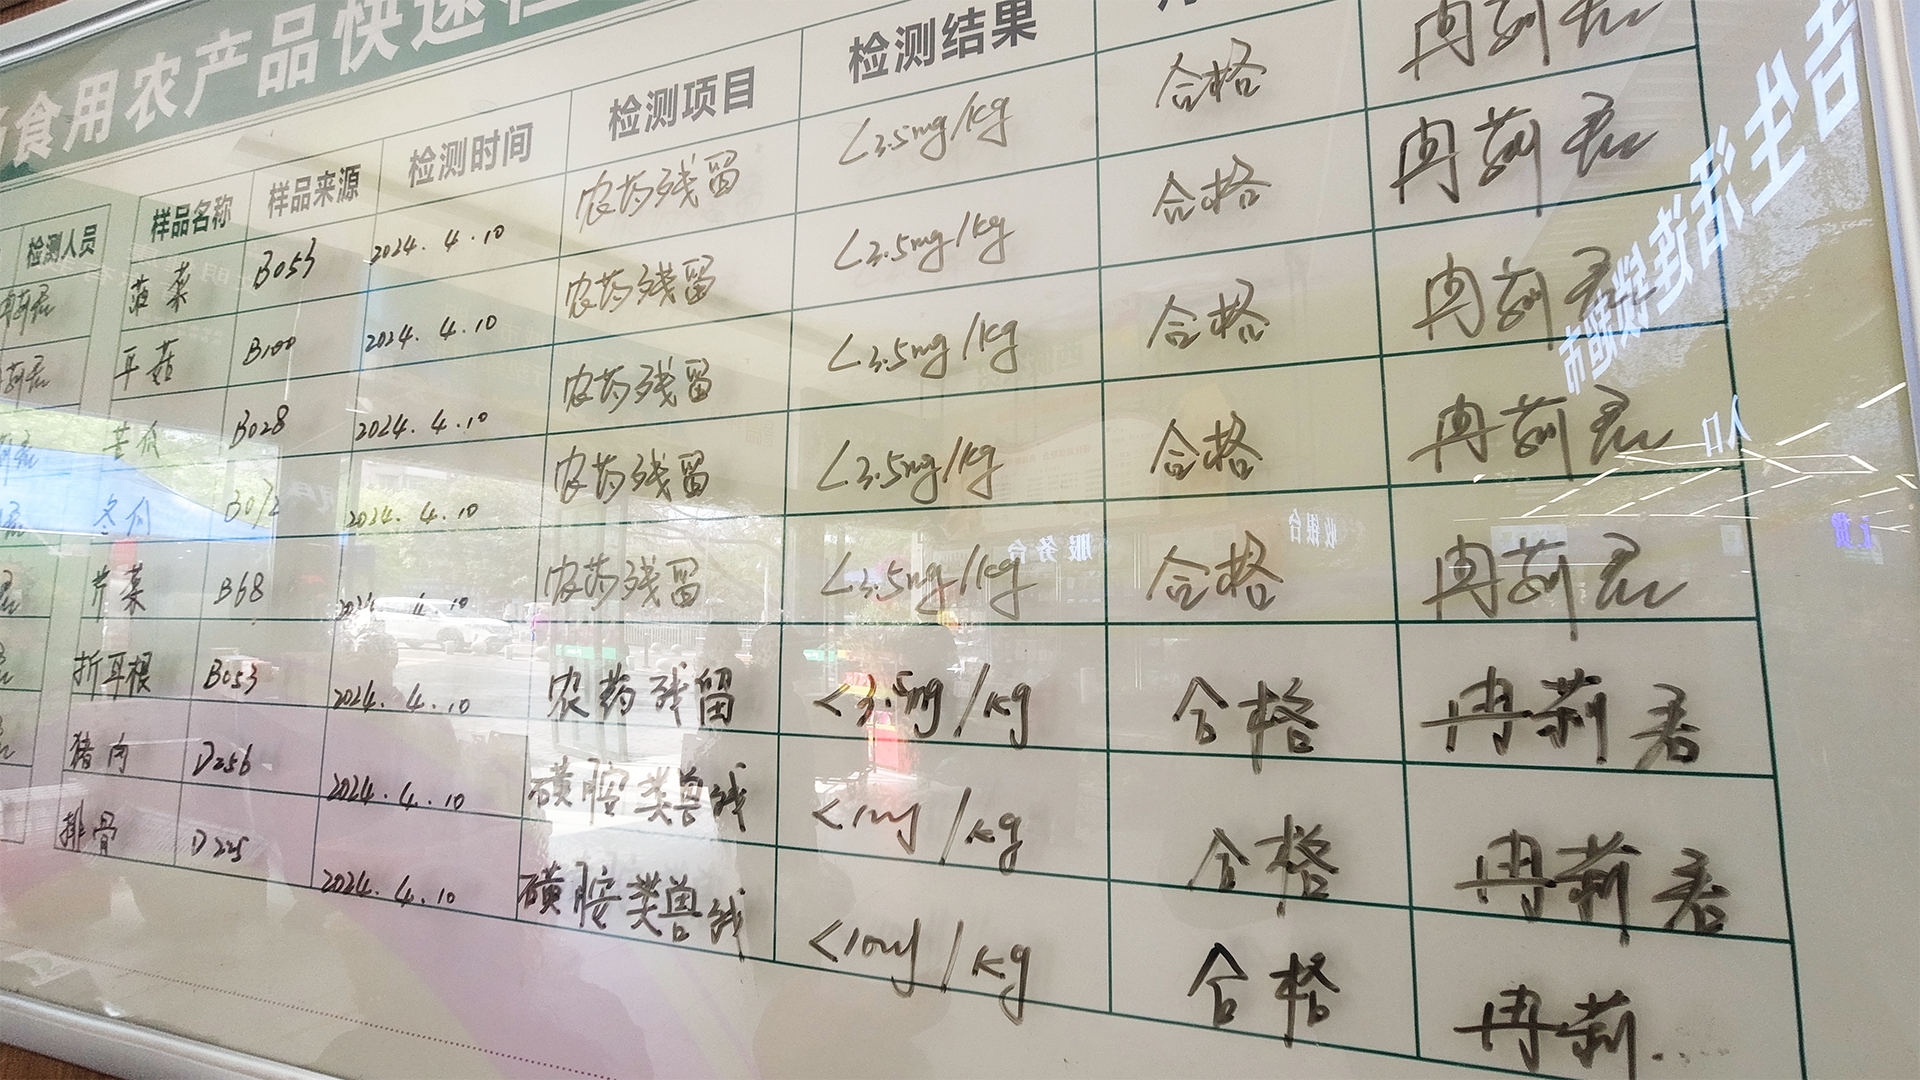 食用农产品快速检
检测人员 样品名称 样品来源 检测时间 检测项目 检测结果
菠菜 B053 2024.4.10 农药残留 <3.5mg/kg 合格 冉莉君
平菇 B100 2024.4.10 农药残留 <3.5mg/kg 合格 冉莉君
苦瓜 B028 2024.4.10 农药残留 <3.5mg/kg 合格 冉莉君
冬瓜 B072 2024.4.10 农药残留 <3.5mg/kg 合格 冉莉君
芹菜 B68 2024.4.10 农药残留 <3.5mg/kg 合格 冉莉君
折耳根 B053 2024.4.10 农药残留 <3.5mg/kg 合格 冉莉君
猪肉 D256 2024.4.10 磺胺类兽残 /kg 合格 冉莉君
排骨 D225 2024.4.10 磺胺类兽残 /kg 合格 冉莉
吉生活建联超市
入口
服务台
收银台